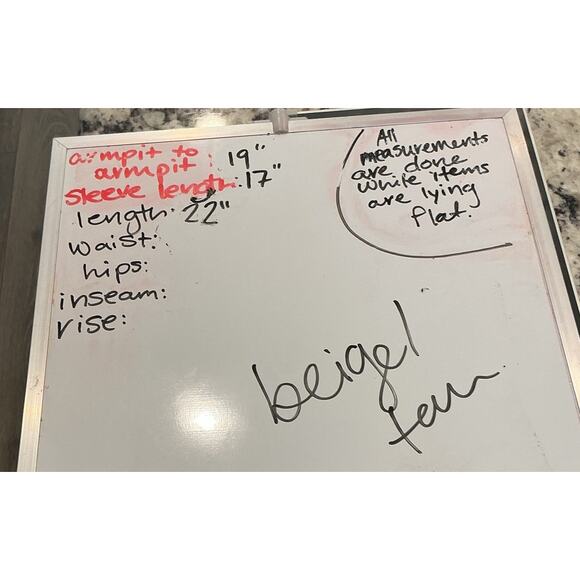 armpit to
armpit: 19"
sleeve length: 17"
length: 22"
waist:
hips:
inseam:
rise:
All
measurements
are done
while items
are lying
flat.
beige/
tan